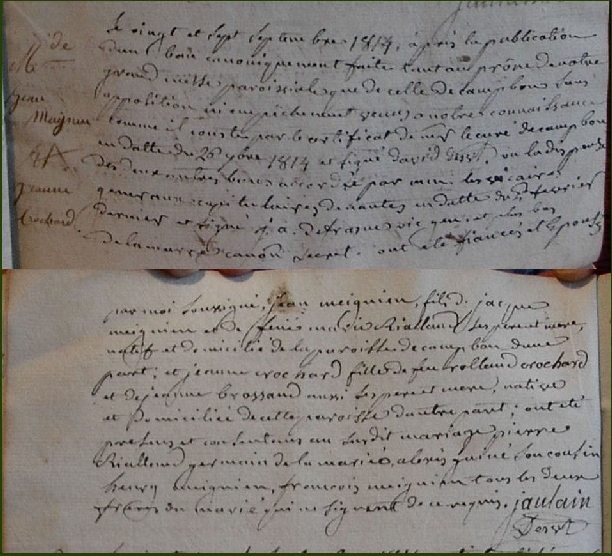 Le vingt et sept septembre 1814, après la publication
d'un banc canoniquement faite tant au prône de notre
grand messe paroissiale que de celle de Campbon sans
opposition ni empêchement venus à notre connaissance
comme il conste par le certificat de mr le curé de campbon
en datte du 26 7bre 1814 et signé david, vu la dispense
des deux autres bancs accordée par mm les vicaires
generaux capitulaires de nantes en datte du fevrier
dernier et signé vic gen et plus bas
de la marre chanoin Secret. ont été fiancés et épousés
M de
jean
Meignien
&
jeanne
Crochard
par moi soussigné, jean meignien, fils de jacque
meignien et de feue marie Rialland ses pere et mere,
natif et domicilié de la paroisse de campbon d'une
part; et jeanne crochard fille de feu rolland crochard
et de jeanne brossaud aussi ses pere et mere, native
et Domiciliée de cette paroisse d'autre part; ont été
presens et consentans au susdit mariage pierre
Rialland germain de la mariée, alexis son cousin
henry meignien, françois meignien tous les deux
freres du marié qui ne signent de ce requis. jaulain